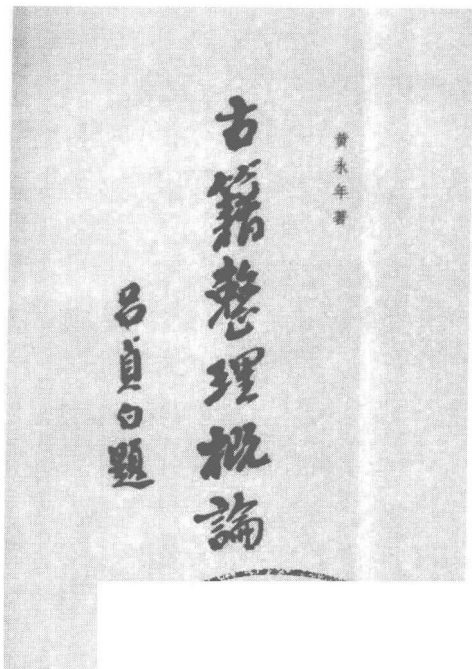 黄永年著
古籍整理概論
吕貞白題